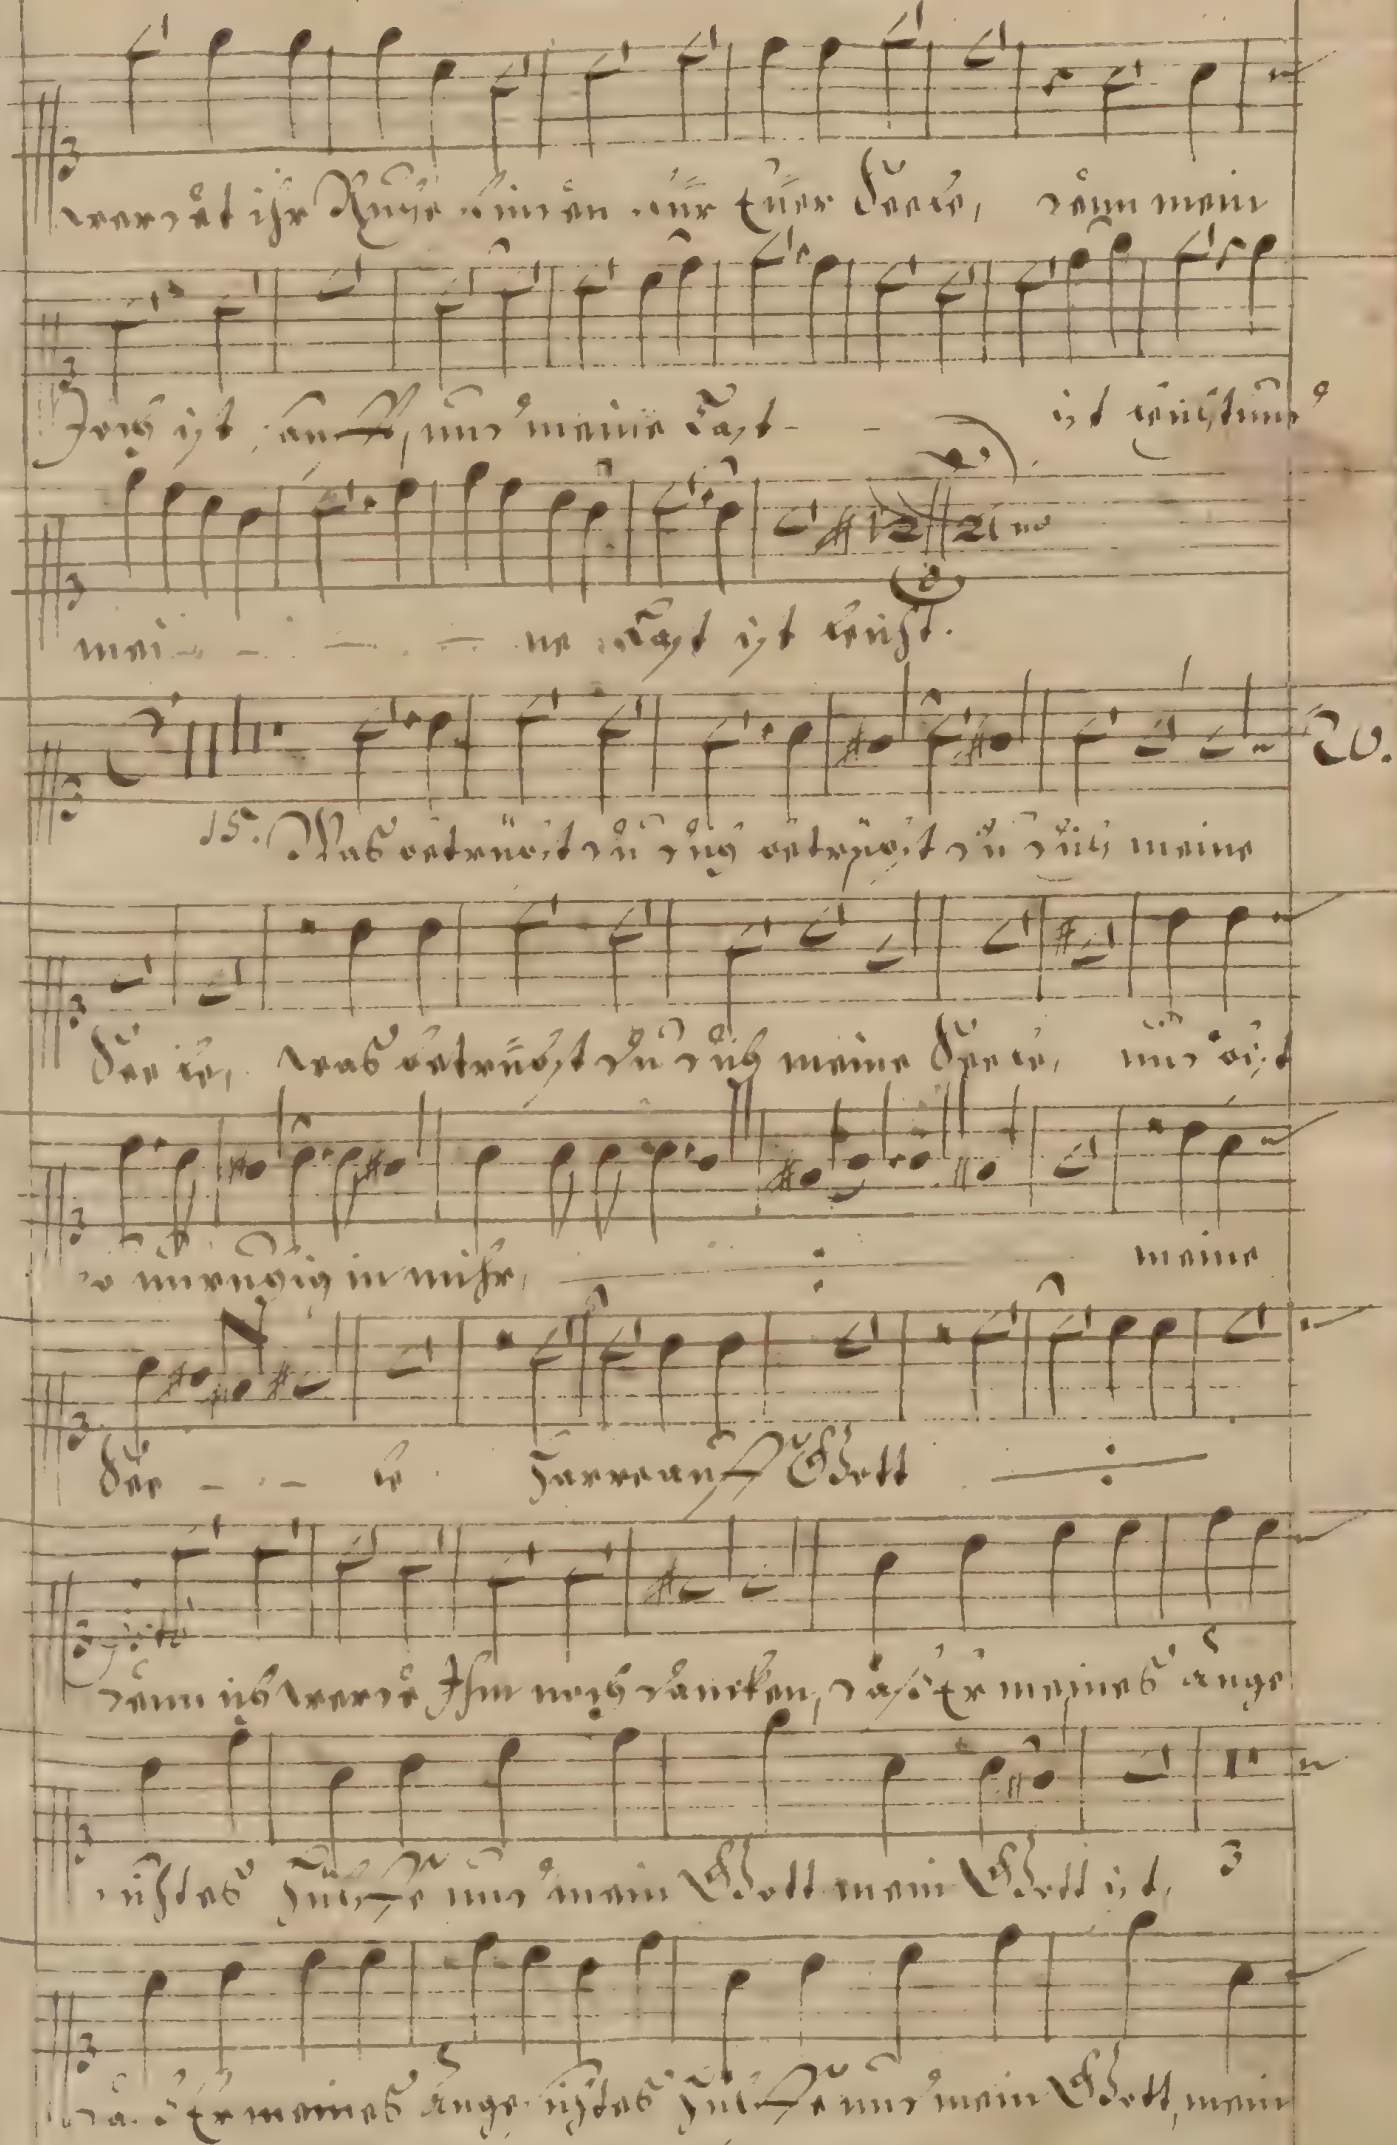 werdet ihr Ruhe finden für Euer Seele, denn mein
Joch ist sanfft, und meine Last - - ist leicht und
mei - - - - - ne Last ist leicht.
20.
15. Was betrübst du dich betrübst du dich meine
Seele, was betrübst du dich meine Seele, und bist
so unruhig in mihr, meine
See - - - le Harre auff Gott
denn ich werde Ihm noch dancken, daß Er meines Ange
sichtes Hülffe und mein Gott mein Gott ist, 3
daß Er meines Angesichtes Hülffe und mein Gott, mein